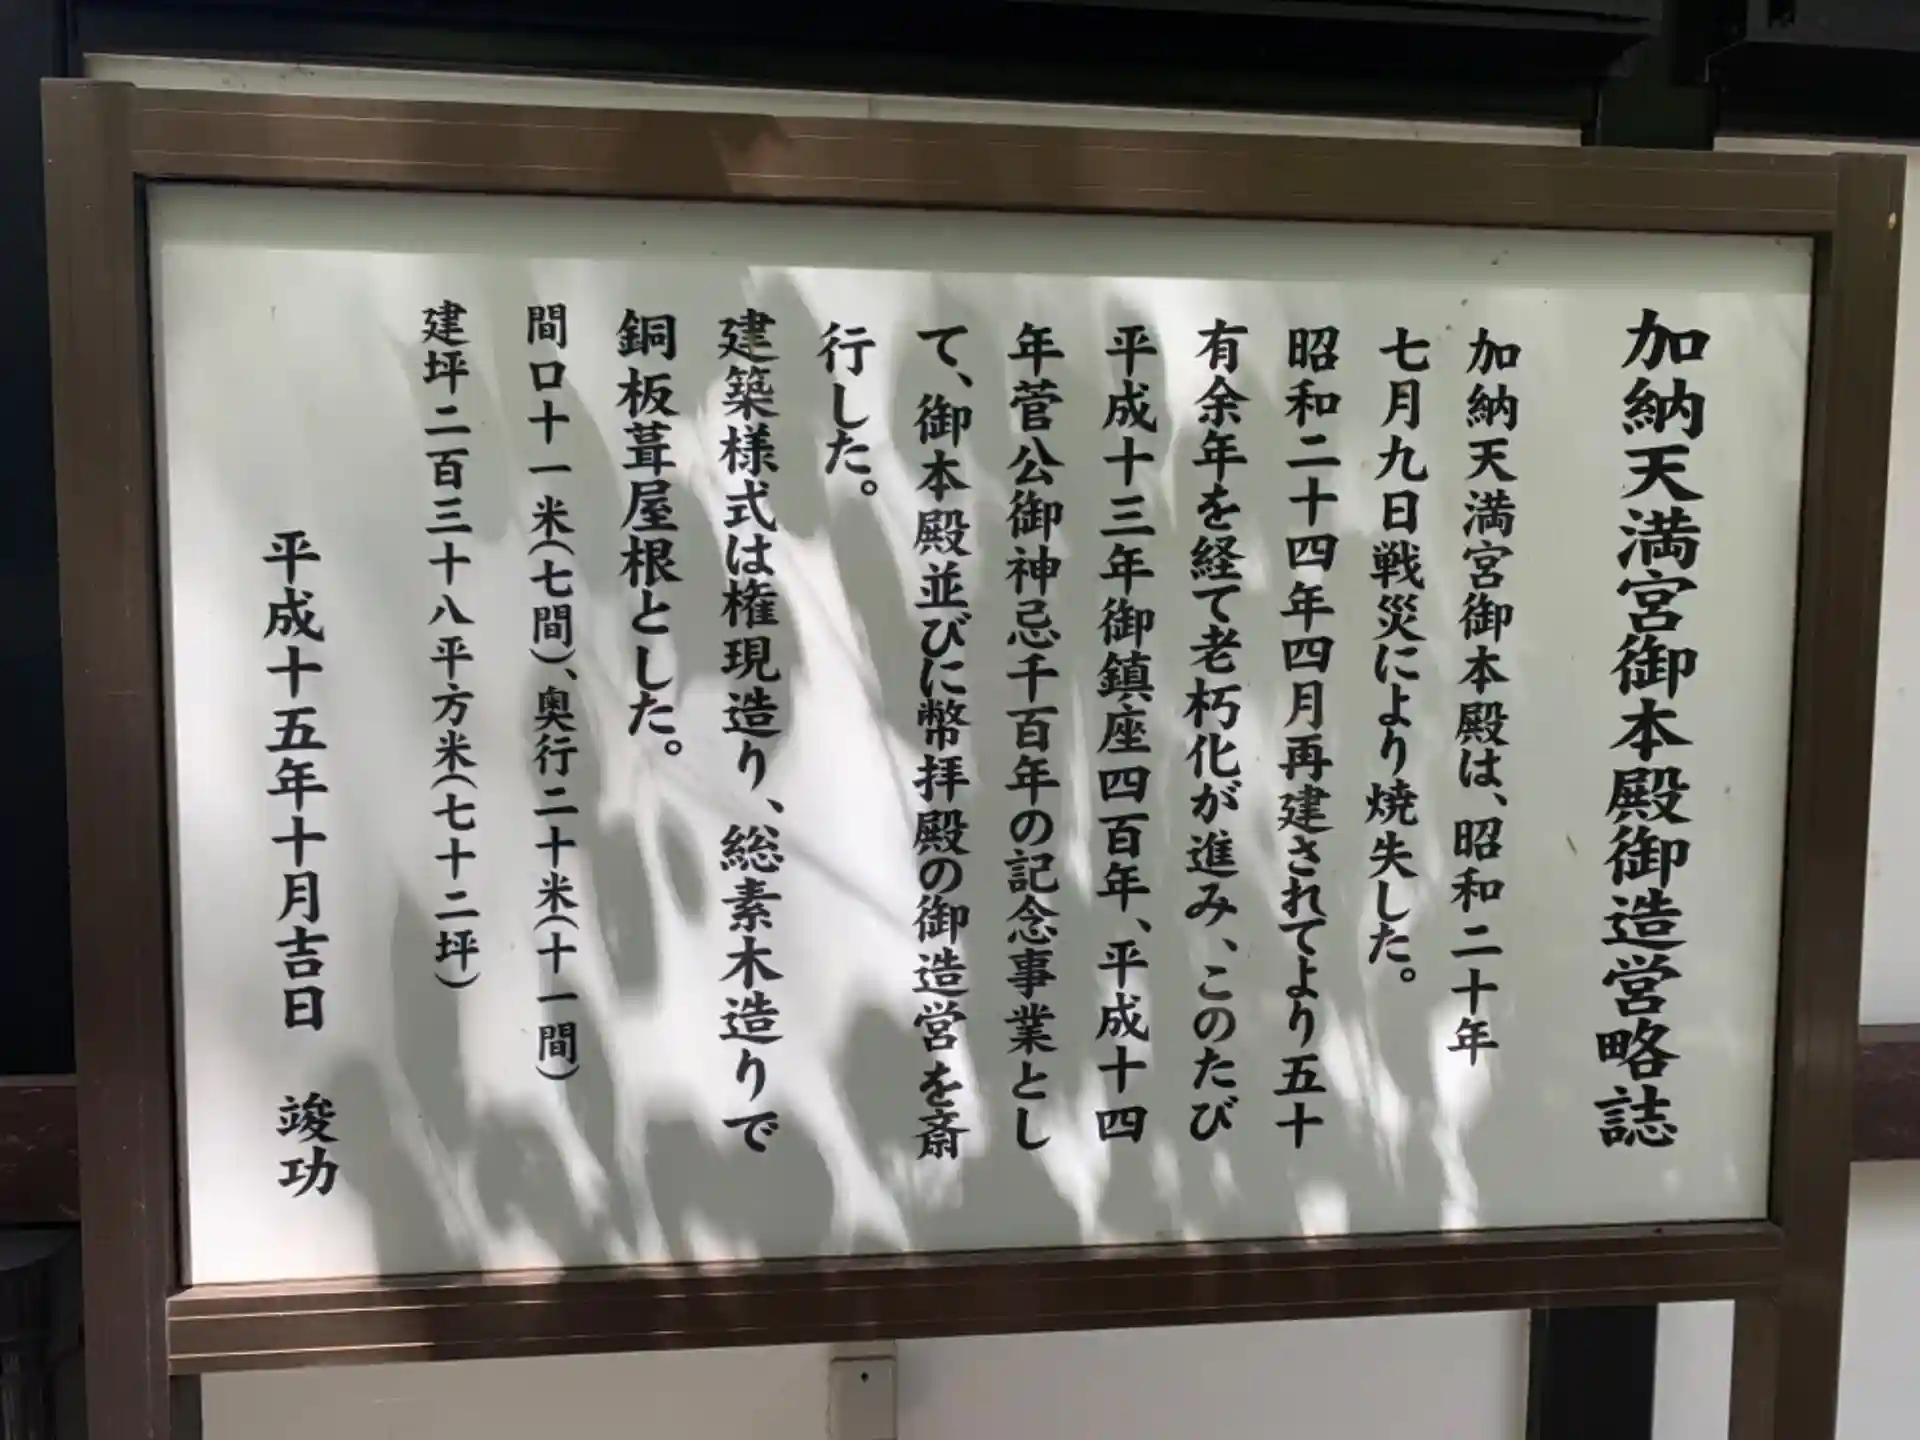 加納天満宮御本殿御造営略誌
加納天満宮御本殿は、昭和二十年
七月九日戦災により焼失した。
昭和二十四年四月再建されてより五十
有余年を経て老朽化が進み、このたび
平成十三年御鎮座四百年、平成十四
年菅公御神忌千百年の記念事業とし
て、御本殿並びに幣拝殿の御造営を斎
行した。
建築様式は権現造り、総素木造りで
銅板葺屋根とした。
間口十一米(七間)、奥行二十米(十一間)
建坪二百三十八平方米(七十二坪)
平成十五年十月吉日 竣功